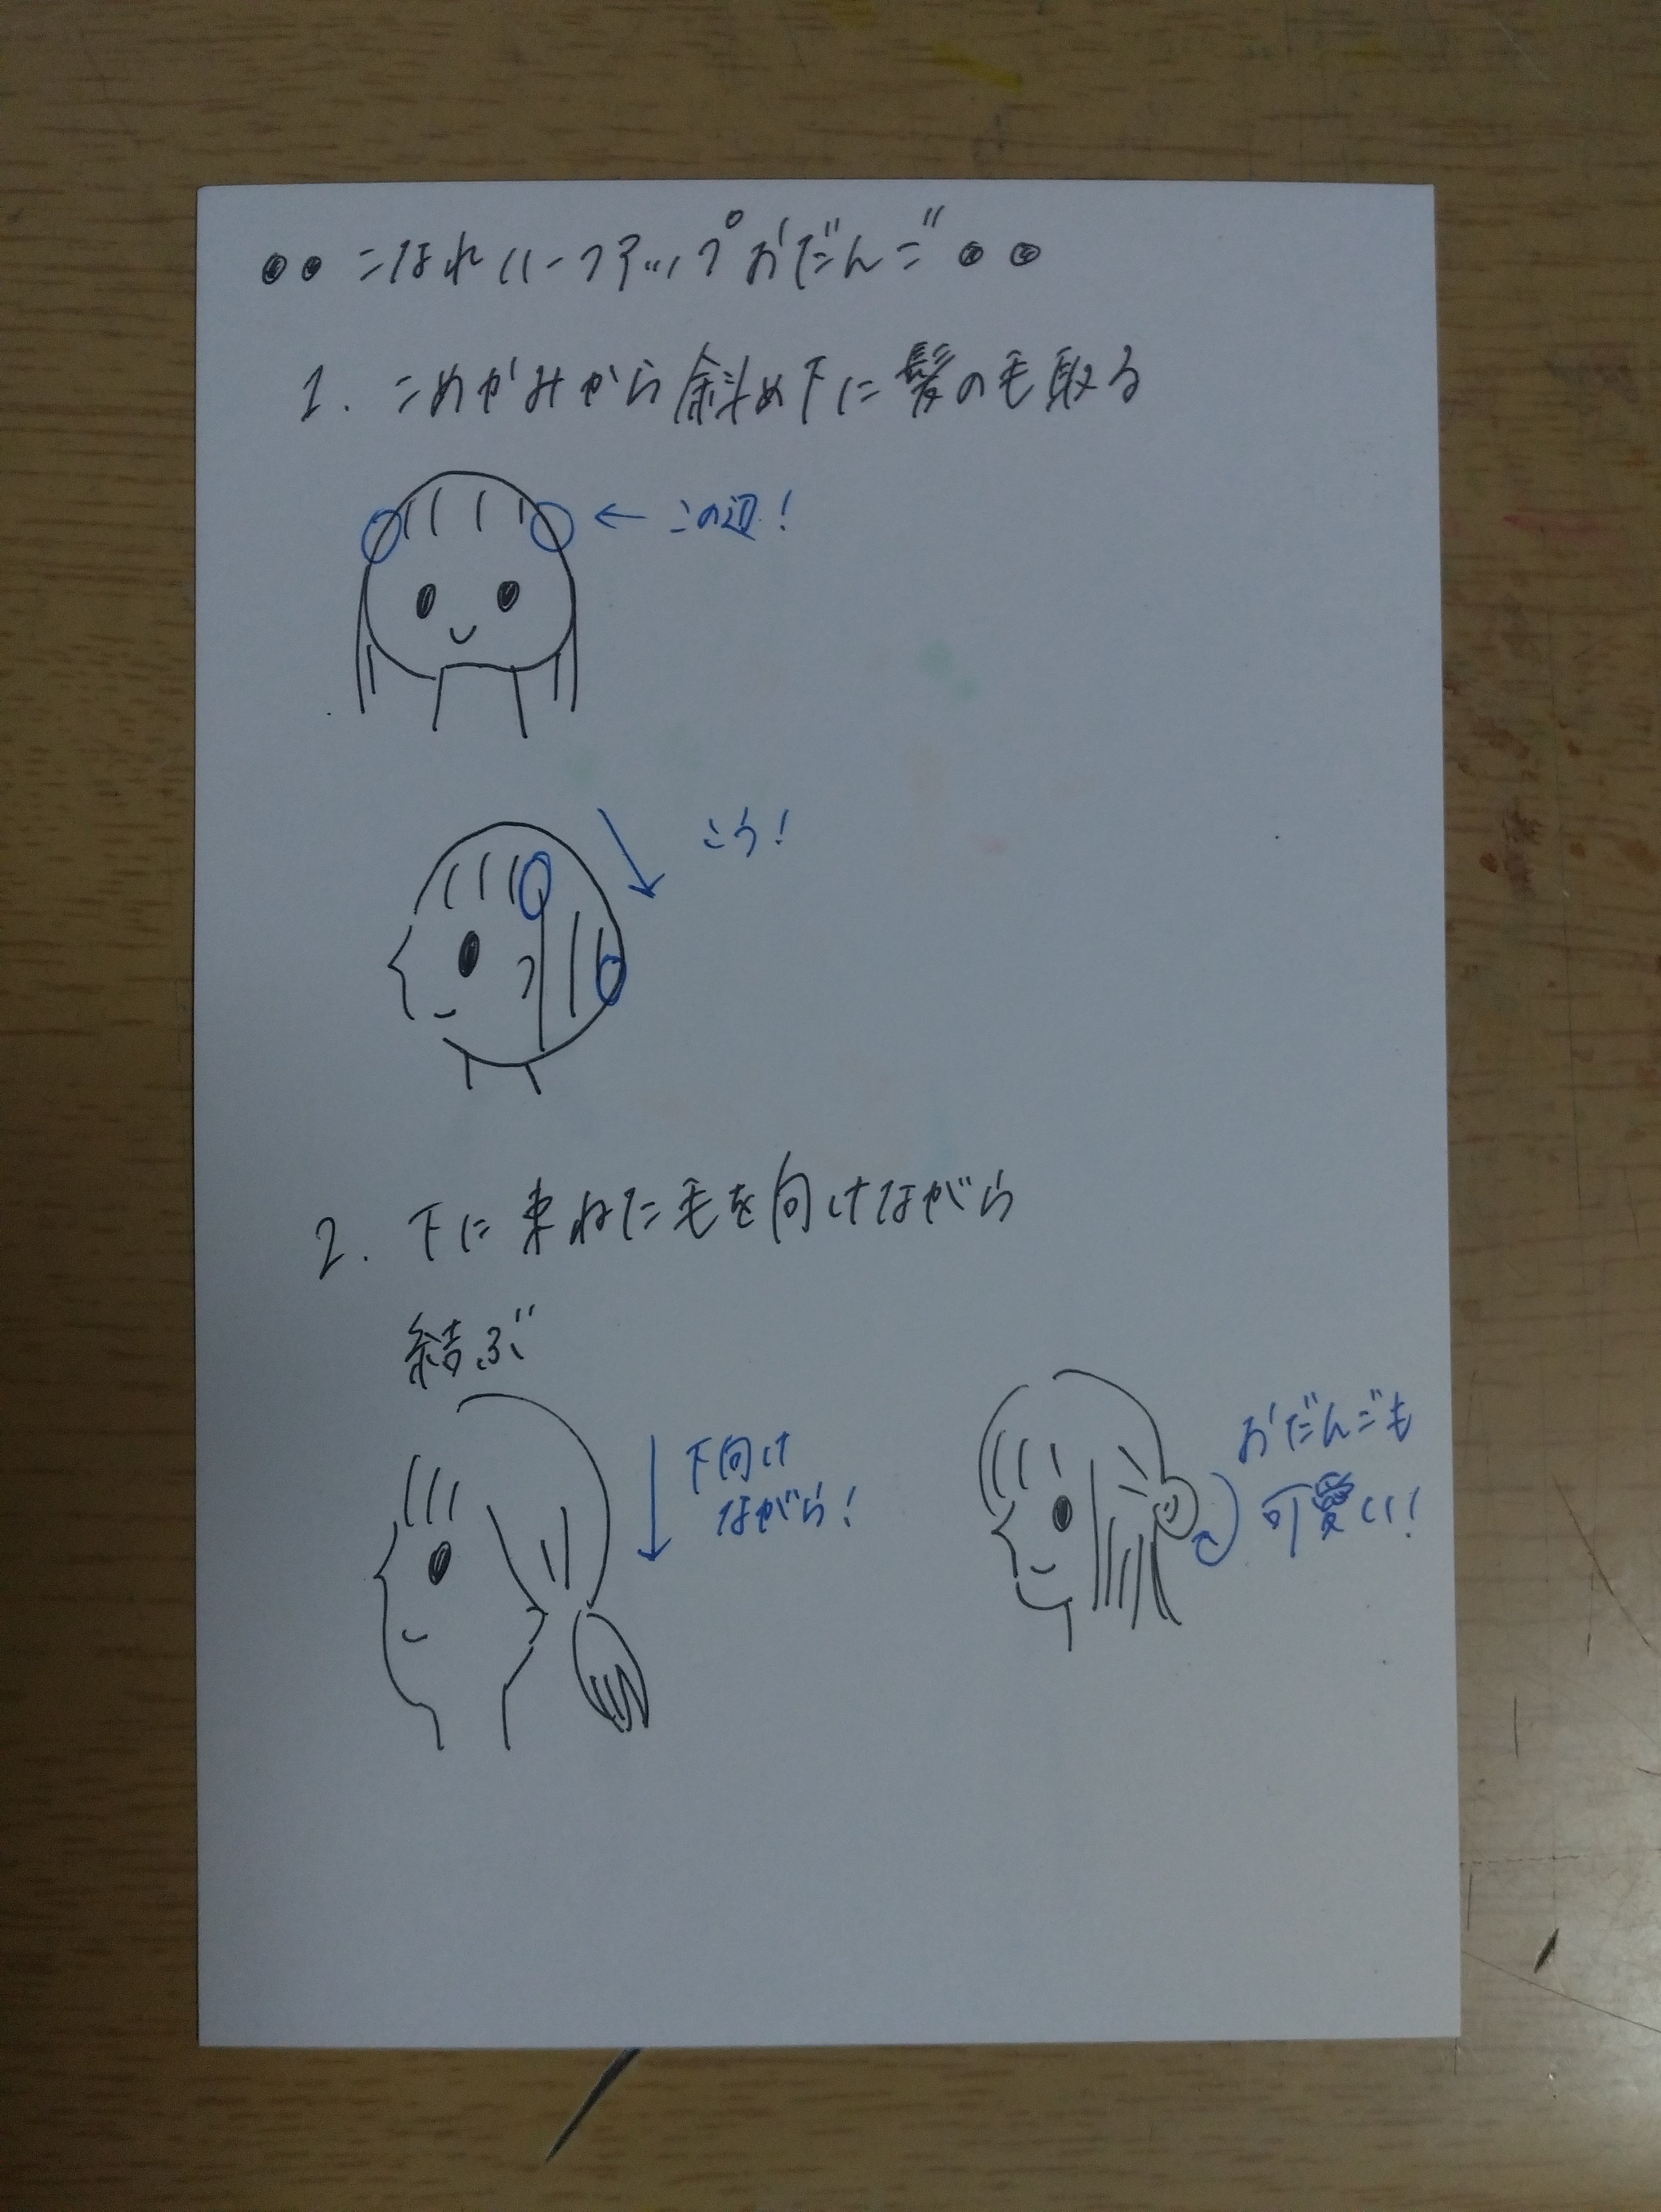 ●● こなれハーフアップおだんご ●●
1. こめかみから斜め下に髪の毛取る
← この辺!
こう!
2. 下に束ねた毛を向けながら
結ぶ
下向け
ながら!
おだんごも
可愛い!